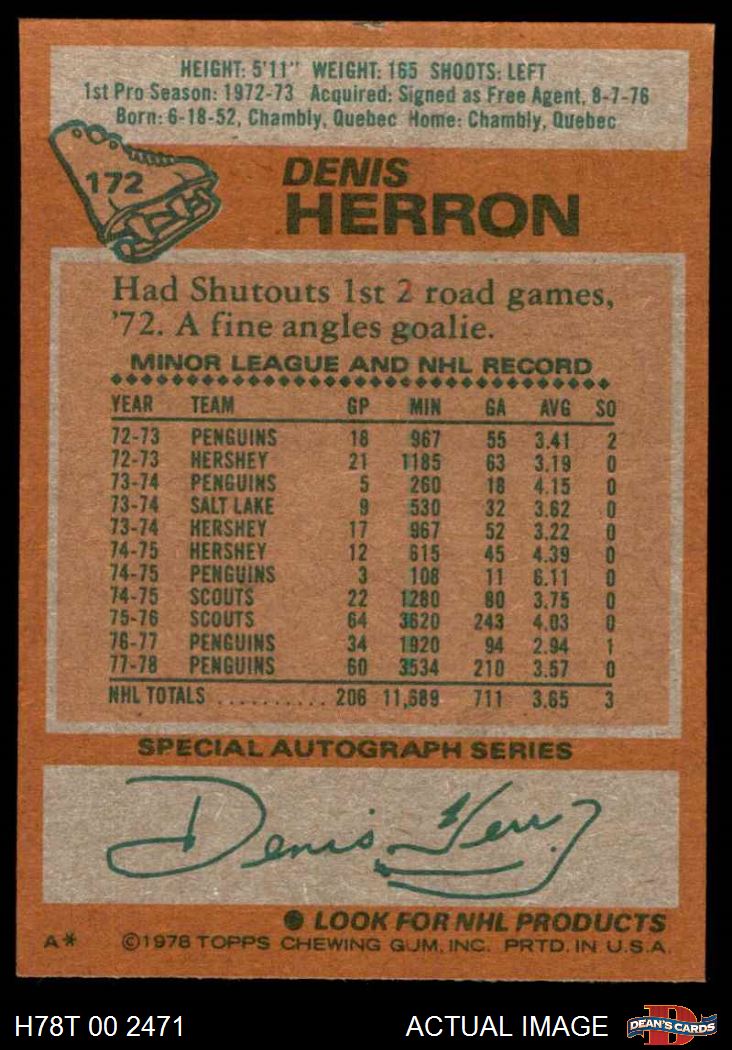 HEIGHT: 5'11" WEIGHT: 165 SHOOTS: LEFT
1st Pro Season: 1972-73 Acquired: Signed as Free Agent, 8-7-76
Born: 6-18-52, Chambly, Quebec Home: Chambly, Quebec
172
DENIS
HERRON
Had Shutouts 1st 2 road games,
'72. A fine angles goalie.
MINOR LEAGUE AND NHL RECORD
YEAR TEAM GP MIN GA AVG SO
72-73 PENGUINS 18 967 55 3.41 2
72-73 HERSHEY 21 1185 63 3.19 0
73-74 PENGUINS 5 260 18 4.15 0
73-74 SALT LAKE 9 530 32 3.62 0
73-74 HERSHEY 17 967 52 3.22 0
74-75 HERSHEY 12 615 45 4.39 0
74-75 PENGUINS 3 108 11 6.11 0
74-75 SCOUTS 22 1280 80 3.75 0
75-76 SCOUTS 64 3620 243 4.03 0
76-77 PENGUINS 34 1920 94 2.94 1
77-78 PENGUINS 60 3534 210 3.57 0
NHL TOTALS .......... 206 11,689 711 3.65 3
SPECIAL AUTOGRAPH SERIES
Denis Herron
● LOOK FOR NHL PRODUCTS
A* ©1978 TOPPS CHEWING GUM, INC. PRTD. IN U.S.A.
H78T 00 2471 ACTUAL IMAGE DEAN'S CARDS